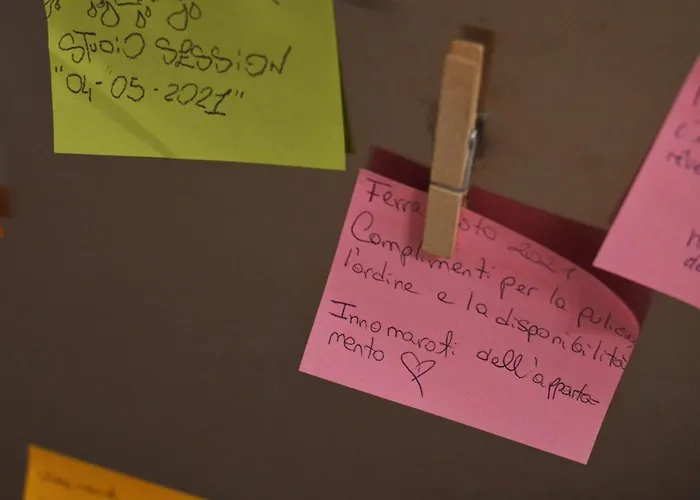 STUDIO SESSION
"04-05-2021"
Ferra sto 2021
Complimenti per la pulizia
l'ordine e la disponibilità
Innamorati dell'apparta-
mento